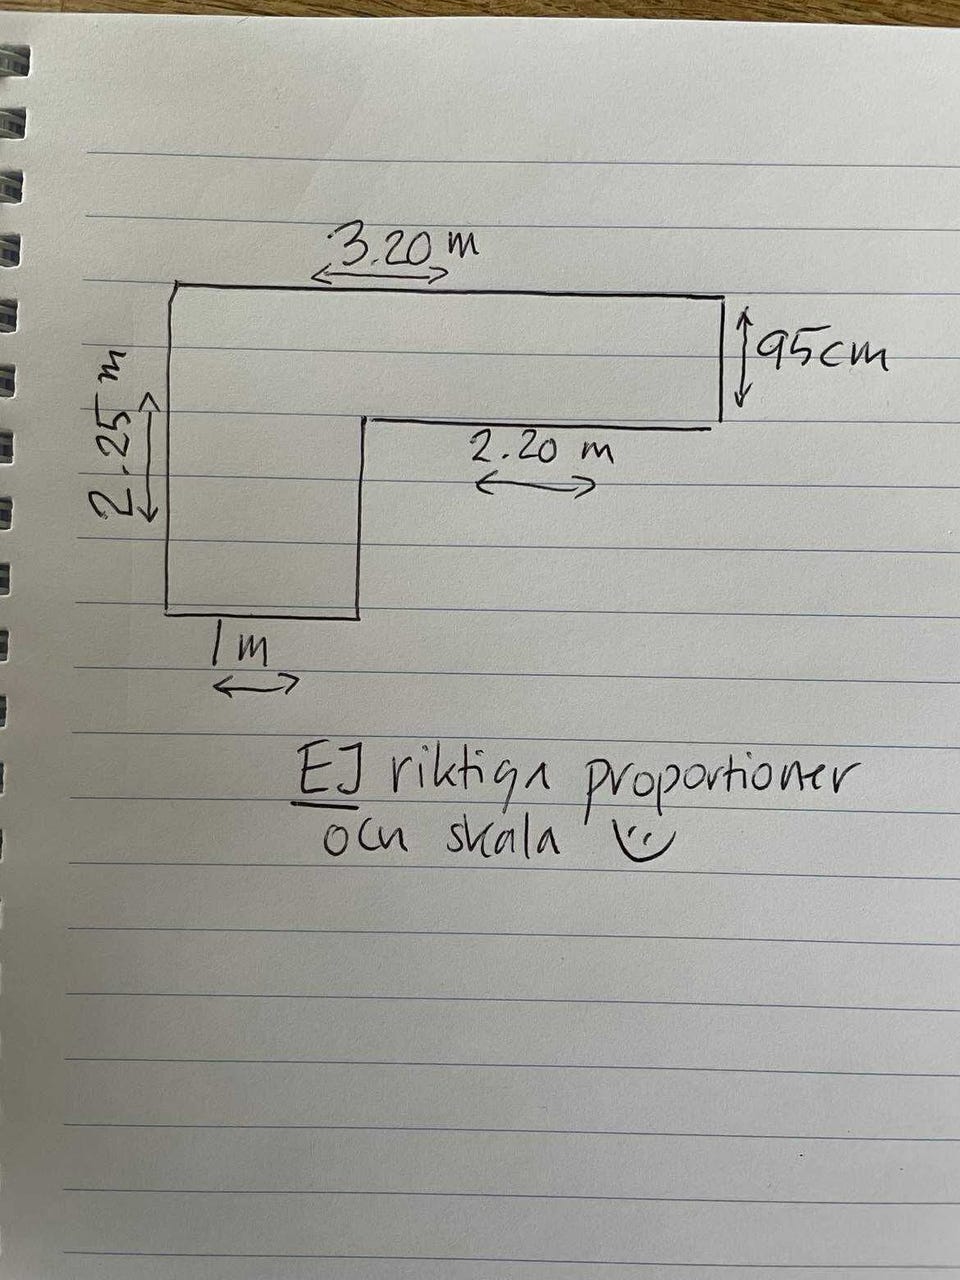 3.20 m
95cm
2.25 m
2.20 m
1 m
EJ riktiga proportioner
och skala